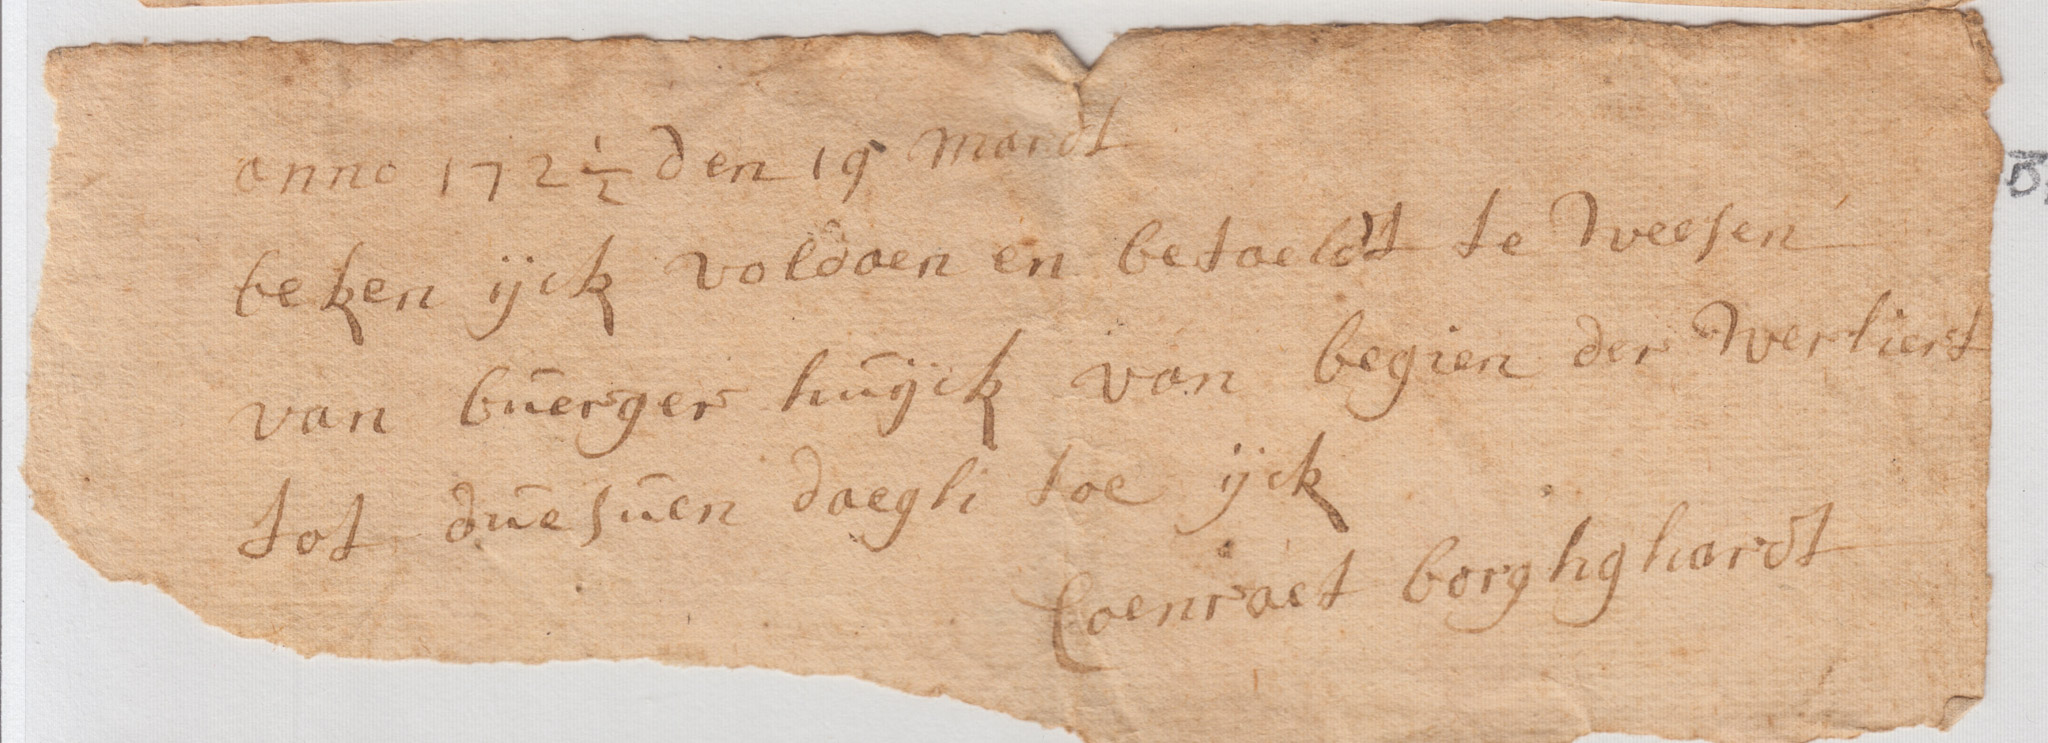 anno 172½ den 19 mardt
beken ijck voldaen en betaeldt te weesen
van buerger huijck van begien der werlierst
tot duesuen daegh toe ijck
Coenraet borghghardt